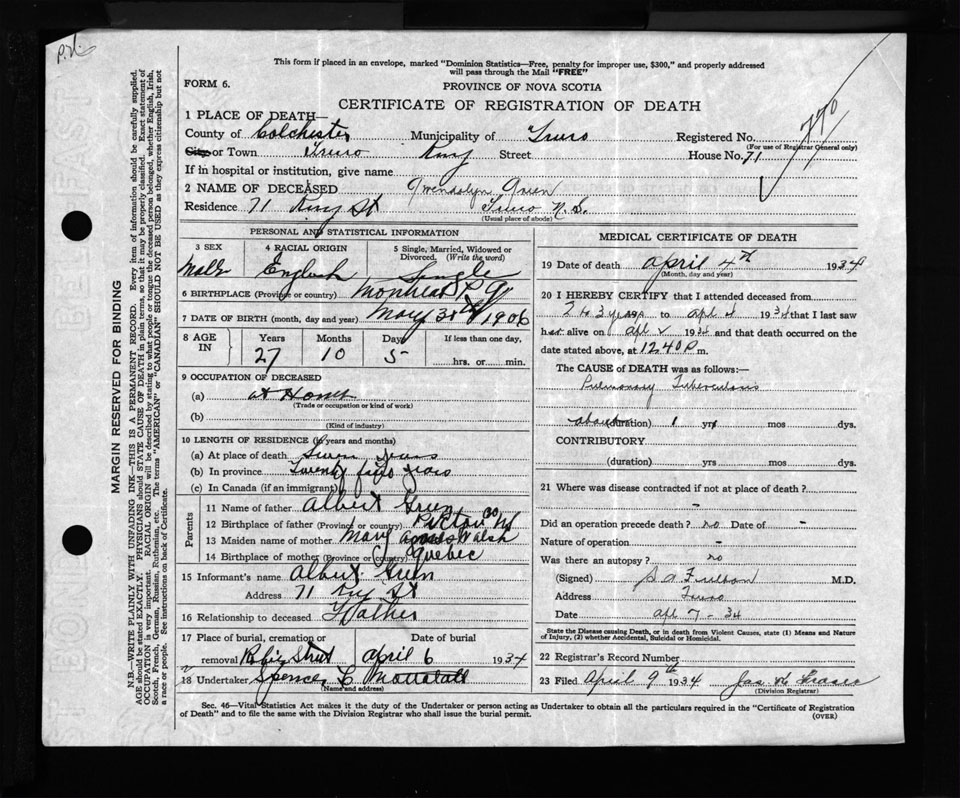 P.N.
This form if placed in an envelope, marked "Dominion Statistics—Free, penalty for improper use, $300," and properly addressed
will pass through the Mail "FREE"
FORM 6.
PROVINCE OF NOVA SCOTIA
CERTIFICATE OF REGISTRATION OF DEATH
770
1 PLACE OF DEATH—
County of Colchester Municipality of Truro Registered No.
(For use of Registrar General only)
City or Town Truro King Street House No. 71
If in hospital or institution, give name
2 NAME OF DECEASED Gwendolyn Green
Residence 71 King St Truro N.S.
(Usual place of abode)
PERSONAL AND STATISTICAL INFORMATION
3 SEX 4 RACIAL ORIGIN 5 Single, Married, Widowed or
Divorced. (Write the word)
Male English Single
6 BIRTHPLACE (Province or country) Montreal P Q
7 DATE OF BIRTH (month, day and year) May 30th 1906
8 AGE IN Years Months Days If less than one day,
27 10 5 hrs. or min.
9 OCCUPATION OF DECEASED
(a) at Home
(Trade or occupation or kind of work)
(b)
(Kind of industry)
10 LENGTH OF RESIDENCE (in years and months)
(a) At place of death Seven years
(b) In province Twenty five years
(c) In Canada (if an immigrant)
Parents
11 Name of father Albert Green
12 Birthplace of father (Province or country) Pictou Co N.S
13 Maiden name of mother Mary Walsh
14 Birthplace of mother (Province or country) Quebec
15 Informant's name Albert Green
Address 71 King St
16 Relationship to deceased Father
17 Place of burial, cremation or Date of burial
removal Robie Street April 6 1934
18 Undertaker Spencer
(Name and address)
MEDICAL CERTIFICATE OF DEATH
19 Date of death April 4th 1934
(Month, day and year)
20 I HEREBY CERTIFY that I attended deceased from
2 years to Apl 4 1934 that I last saw
her alive on Apl 2 1934 and that death occurred on
date stated above, at 12.40 P m.
The CAUSE of DEATH was as follows:—
Pulmonary Tuberculosis
about (duration) 1 yrs mos dys.
CONTRIBUTORY
(duration) yrs mos dys.
21 Where was disease contracted if not at place of death?
-
Did an operation precede death? no Date of -
Nature of operation -
Was there an autopsy? no
(Signed) M.D.
Address Truro
Date Apl 7 - 34
State the Disease causing Death, or in death from Violent Causes, state (1) Means and Nature
of Injury, (2) whether Accidental, Suicidal or Homicidal.
22 Registrar's Record Number
23 Filed April 9th 1934 Jas W Fraser
(Division Registrar)
Sec. 46—Vital Statistics Act makes it the duty of the Undertaker or person acting as Undertaker to obtain all the particulars required in the "Certificate of Registration
of Death" and to file the same with the Division Registrar who shall issue the burial permit.
(OVER)
MARGIN RESERVED FOR BINDING
N.B.—WRITE PLAINLY WITH UNFADING INK—THIS IS A PERMANENT RECORD. Every item of information should be carefully supplied.
AGE should be stated EXACTLY. PHYSICIANS should STATE CAUSE OF DEATH in plain terms, so that it may be properly classified. Exact statement of
OCCUPATION is very important. RACIAL ORIGIN will be described by stating to what people or tongue the deceased person belonged, whether English, Irish,
Scotch, French, German, Russian, Ruthenian, etc. The terms "AMERICAN" or "CANADIAN" SHOULD NOT BE USED as they express citizenship but not
a race or people. See instructions on back of Certificate.